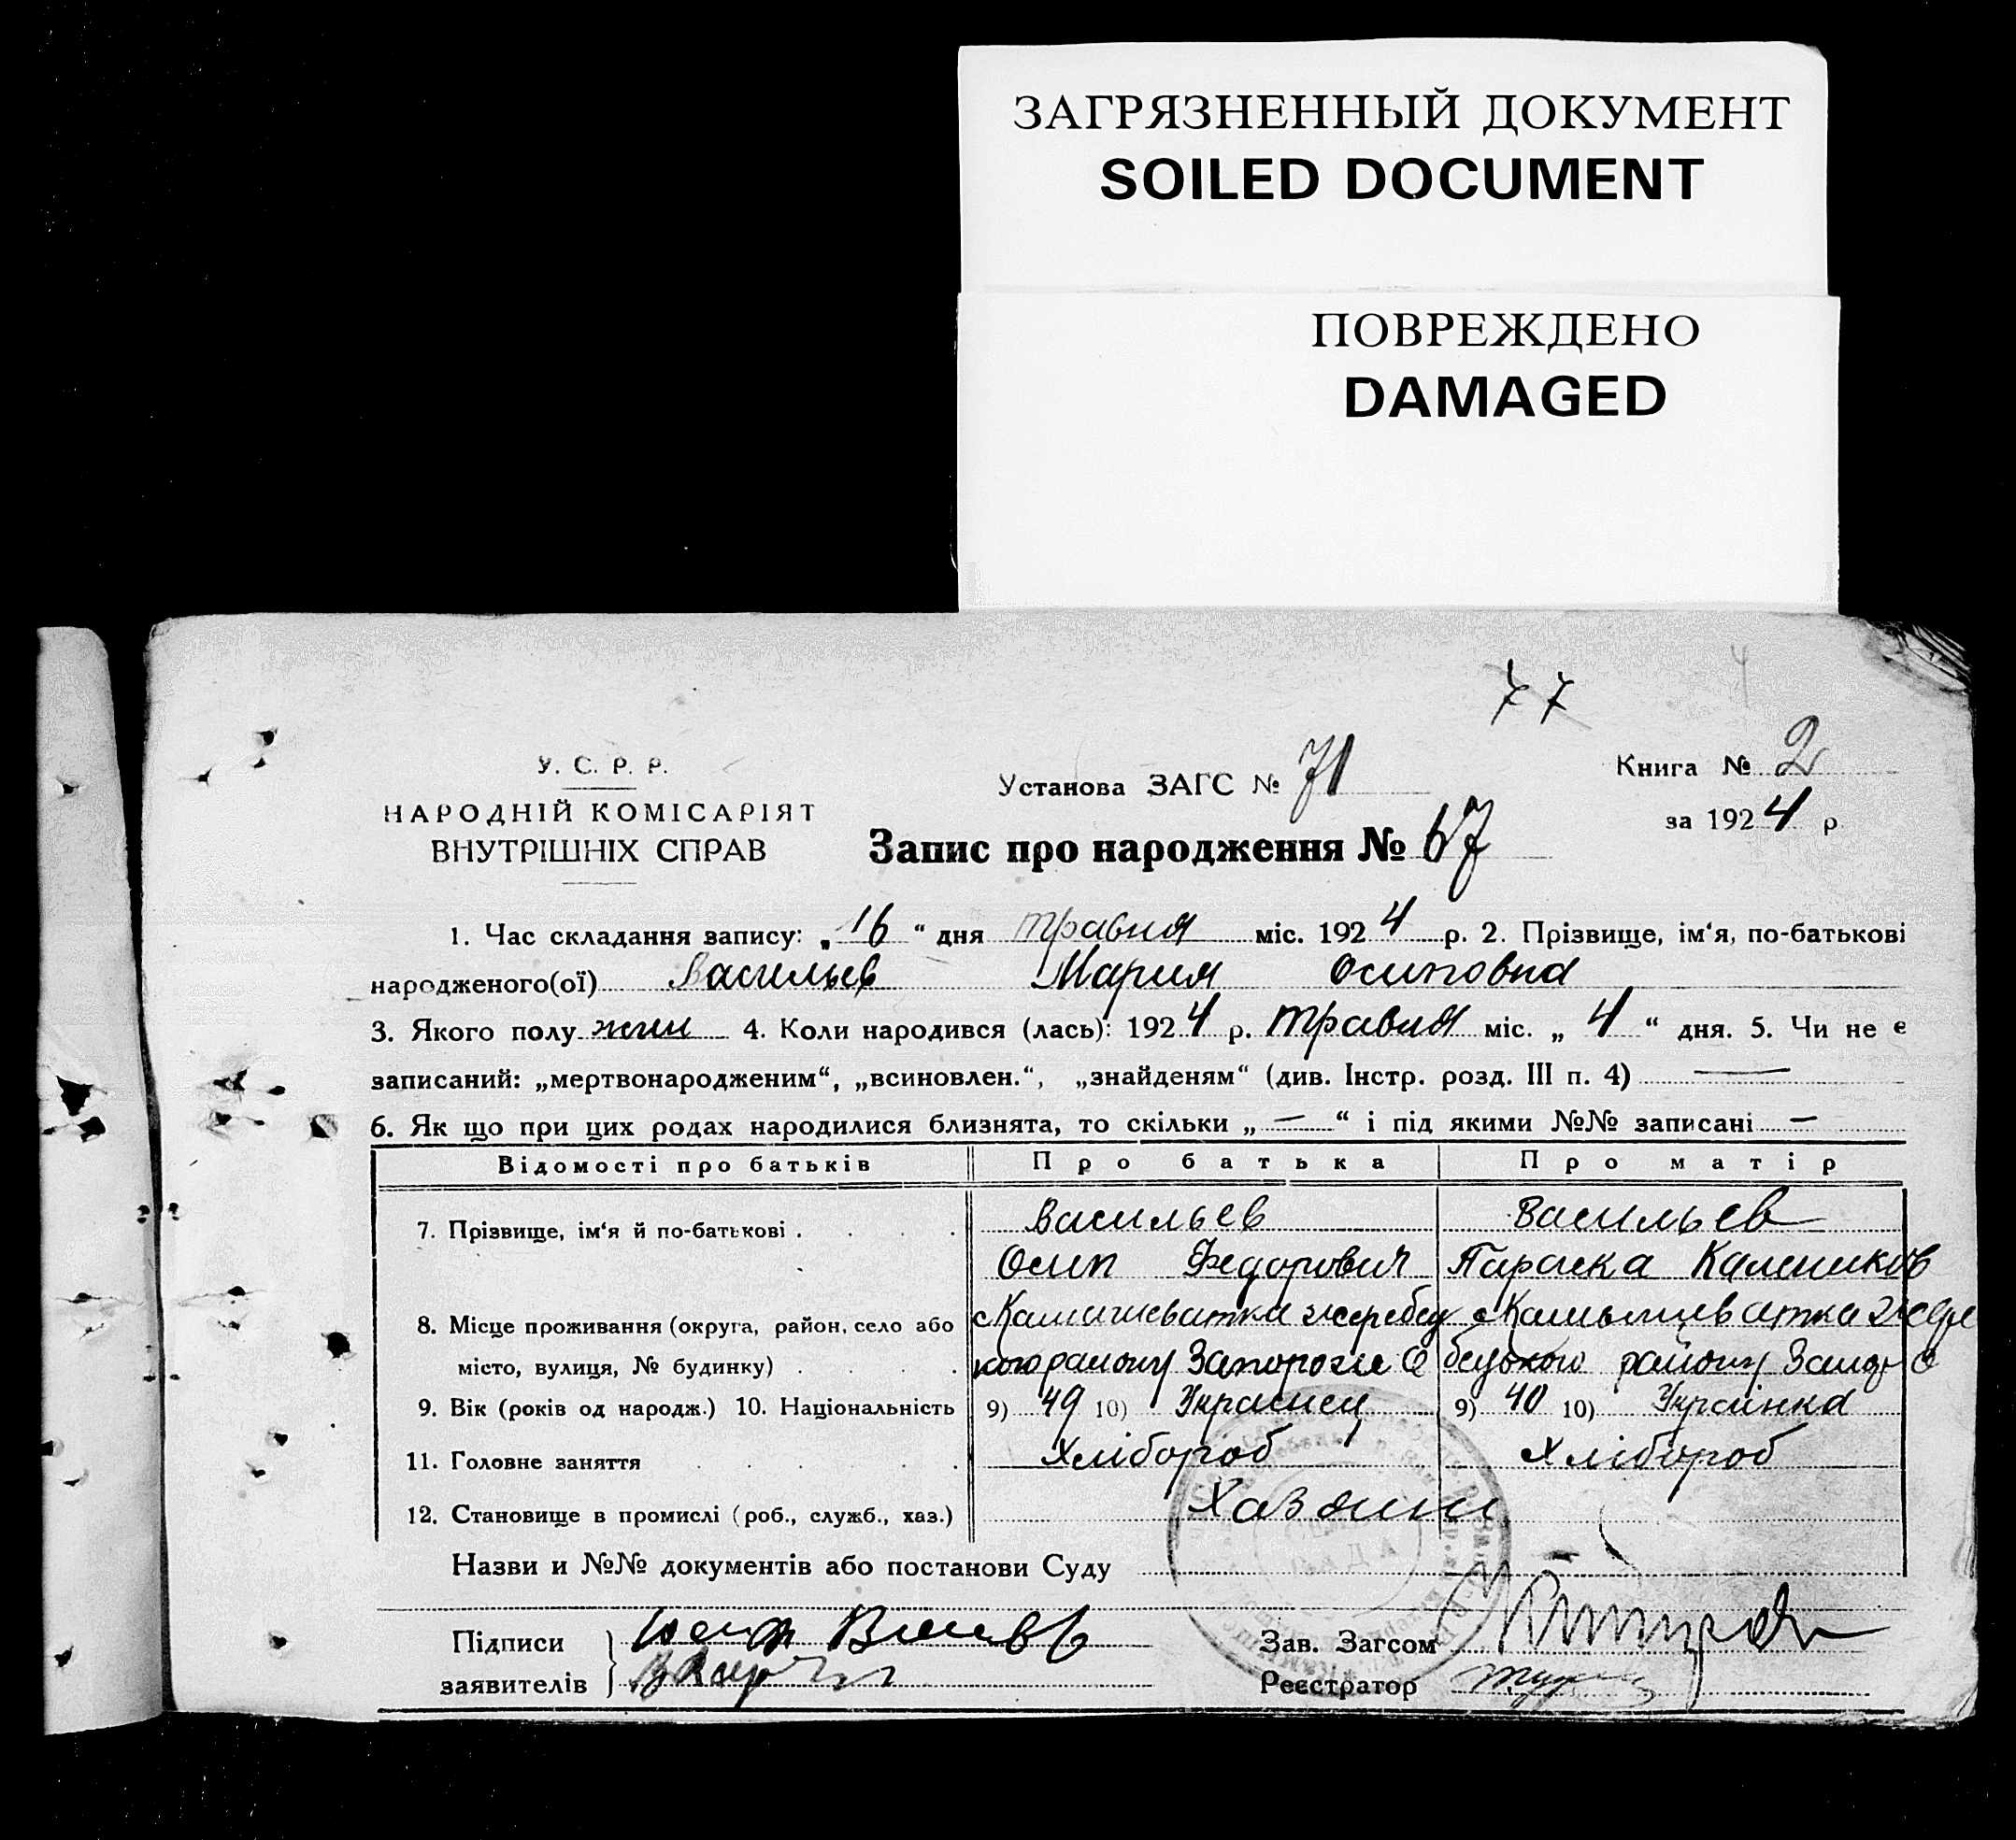 ЗАГРЯЗНЕННЫЙ ДОКУМЕНТ
SOILED DOCUMENT
ПОВРЕЖДЕНО
DAMAGED
77
У. С. Р. Р.
НАРОДНІЙ КОМІСАРІЯТ
ВНУТРІШНІХ СПРАВ
Установа ЗАГС № 71
Книга № 2
за 1924 р.
Запис про народження № 67
1. Час складання запису: „16“ дня травня міс. 1924 р. 2. Прізвище, ім‘я, по-батькові
народженого(ої) Васильев Мария Осиповна
3. Якого полу жин 4. Коли народився (лась): 1924 р. травня міс. „4“ дня. 5. Чи не є
записаний: „мертвонародженим“, „всиновлен.“, „знайденям“ (див. Інстр. розд. III п. 4) —
6. Як що при цих родах народилися близнята, то скільки „—“ і під якими №№ записані —
Відомості про батьків Про батька Про матір
7. Прізвище, ім‘я й по-батькові Васильев Васильев
Осип Федорович Параска Калеников
8. Місце проживання (округа, район, село або с Камишеватка жеребец с Камышеватка Жере
місто, вулиця, № будинку) кого району Запорожс О бецького району Запор О
9. Вік (років од народж.) 10. Національність 9) 49 10) Украінец 9) 40 10) Українка
11. Головне заняття Хлібороб Хлібороб
12. Становище в промислі (роб., служб., хаз.) Хазяини
Назви и №№ документів або постанови Суду
Підписи
заявителів
Зав. Загсом
Реєстратор